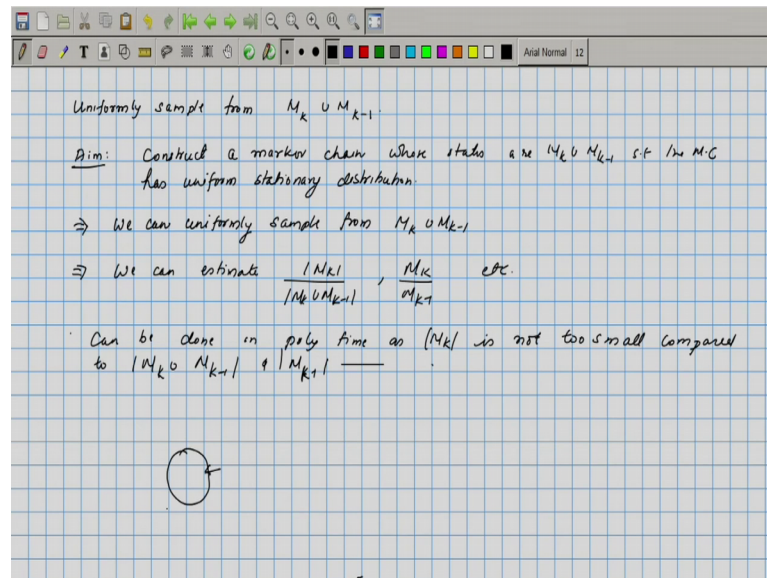 T
Arial Normal 12
Uniformly sample from M_k ∪ M_{k-1}.
Aim: Construct a markov chain whose states are M_k ∪ M_{k-1} s.t the M.C
has uniform stationary distribution.
⇒ We can uniformly sample from M_k ∪ M_{k-1}
⇒ We can estimate |M_k| / |M_k ∪ M_{k-1}| , M_k / M_{k-1} etc.
Can be done in poly time as |M_k| is not too small compared
to |M_k ∪ M_{k-1}| & |M_{k-1}| —— .